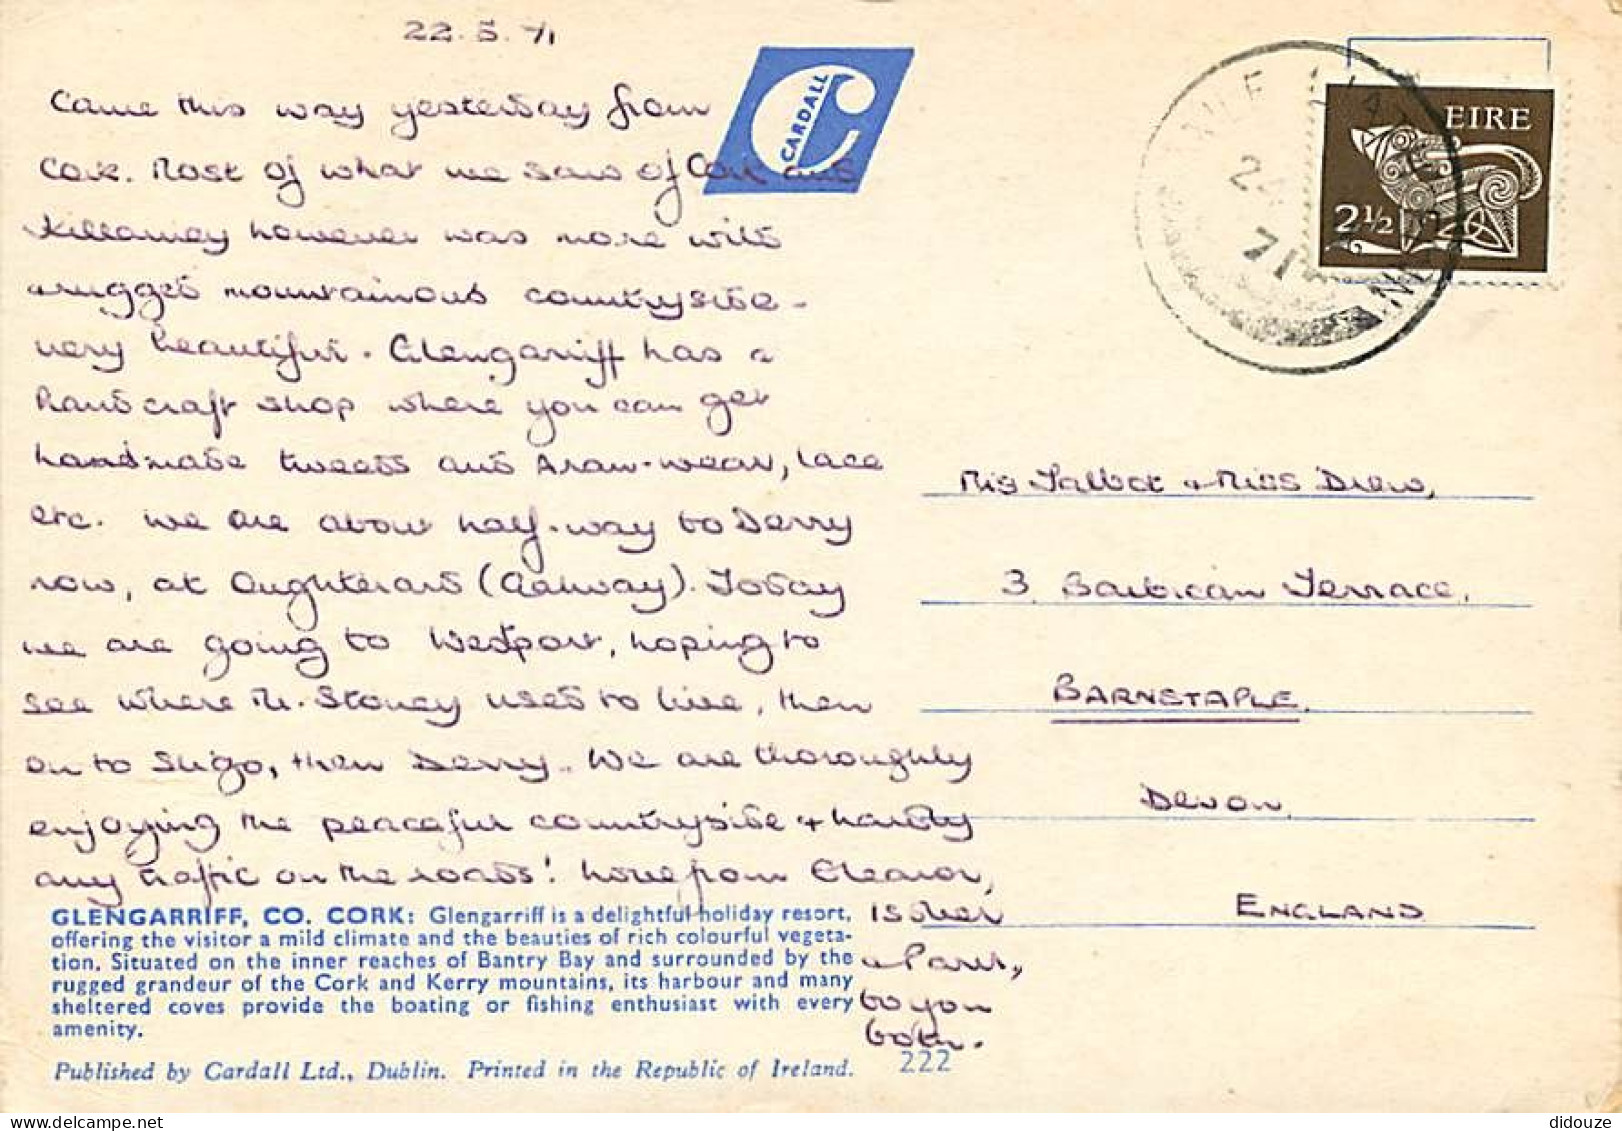 22.5.71
Came this way yesterday from
Cork. Most of what we saw of Cork and
Killarney however was more wild
+ rugged mountainous countryside -
very beautiful. Glengarriff has a
handcraft shop where you can get
handmade tweeds and Aran-wear, lace
etc. We are about half-way to Derry
now, at Oughterard (Galway). Today
we are going to Westport, hoping to
see where Mr. Stoney used to live, then
on to Sligo, then Derry. We are thoroughly
enjoying the peaceful countryside + hardly
any traffic on the roads! Love from Eleanor,
Isobel
to you
both.
CARDALL
EIRE
2½
24
71
Talbot + Miss Drew,
3 Barbican Terrace,
BARNSTAPLE.
DEVON,
ENGLAND
GLENGARRIFF, CO. CORK: Glengarriff is a delightful holiday resort,
offering the visitor a mild climate and the beauties of rich colourful vegeta-
tion. Situated on the inner reaches of Bantry Bay and surrounded by the
rugged grandeur of the Cork and Kerry mountains, its harbour and many
sheltered coves provide the boating or fishing enthusiast with every
amenity.
Published by Cardall Ltd., Dublin. Printed in the Republic of Ireland.
222
didouze